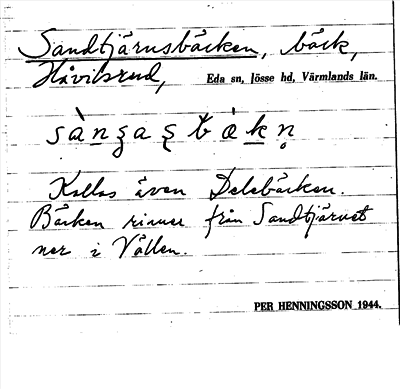 Sandtjärnsbäcken, bäck,
Håvilsrud, Eda sn, Jösse hd, Värmlands län.
Kallas även Delebäcken.
Bäcken rinner från Sandtjärnet
ner i Vållen.
PER HENNINGSSON 1944.